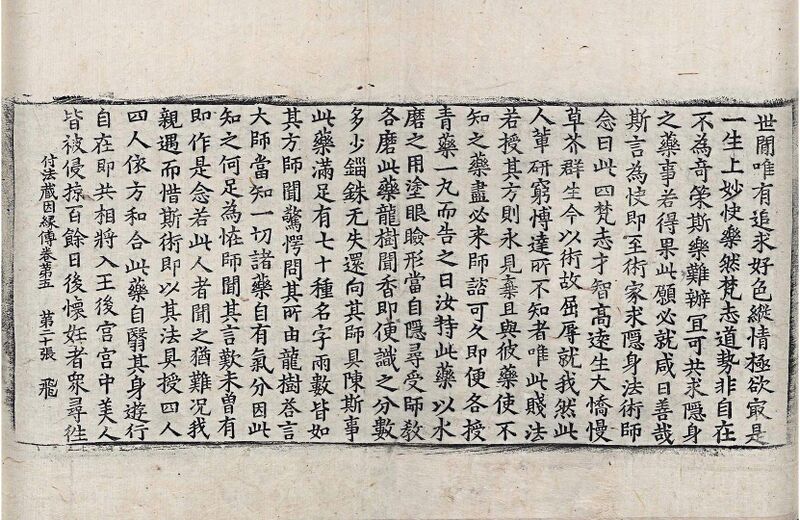 世閒唯有追求好色縱情極欲㝡是
一生上妙快樂然梵志道勢非自在
不為奇策斯樂難辦冝可共求隱身
之藥事若得果此願必就咸曰善哉
斯言為快即至術家求隱身法術師
念曰此四梵志才智高遠生大憍慢
草芥群生今以術故屈辱就我然此
人軰研窮博達所不知者唯此賤法
若授其方則永見棄且與彼藥使不
知之藥盡必来師諮可久即便各授
青藥一丸而告之曰汝持此藥以水
磨之用塗眼瞼形當自隱尋受師教
各磨此藥龍樹聞香即便識之分數
多少錙銖无失還向其師具陳斯事
此藥滿足有七十種名字兩數皆如
其方師聞驚愕問其所由龍樹荅言
大師當知一切諸藥自有氣分因此
知之何足為恠師聞其言歎未曽有
即作是念若此人者聞之猶難況我
親遇而惜斯術即以其法具授四人
四人依方和合此藥自翳其身遊行
自在即共相將入王後宮宮中美人
皆被侵掠百餘日後懷妊者衆尋往
付法藏因緣傳卷第五　第二十張　飛